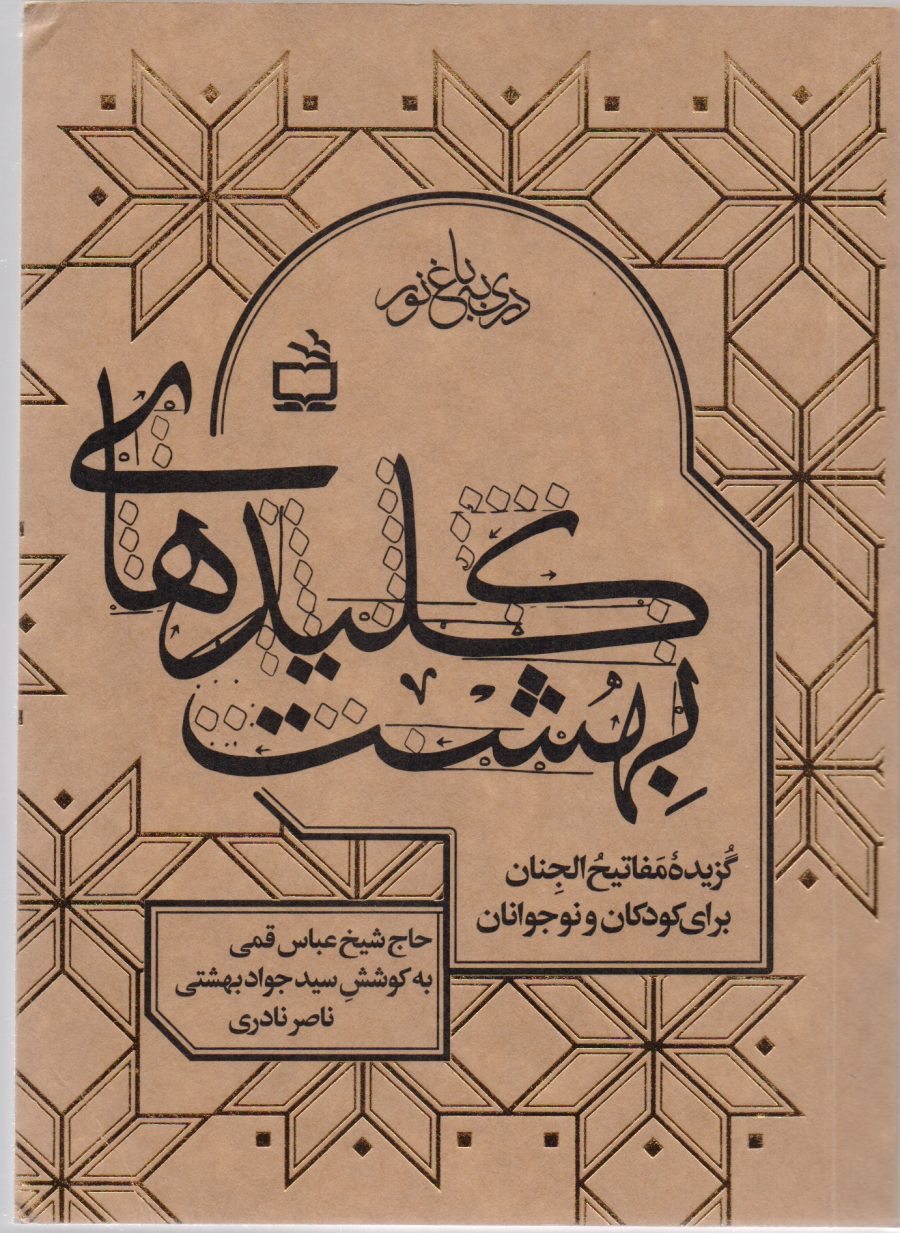 دری به باغ نور
کلیدهای
بِهُشت
گُزیدهٔ مَفاتیحُ الجِنان
برای کودکان و نوجوانان
حاج شیخ عباس قمی
به کوششِ سید جواد بهشتی
ناصر نادری